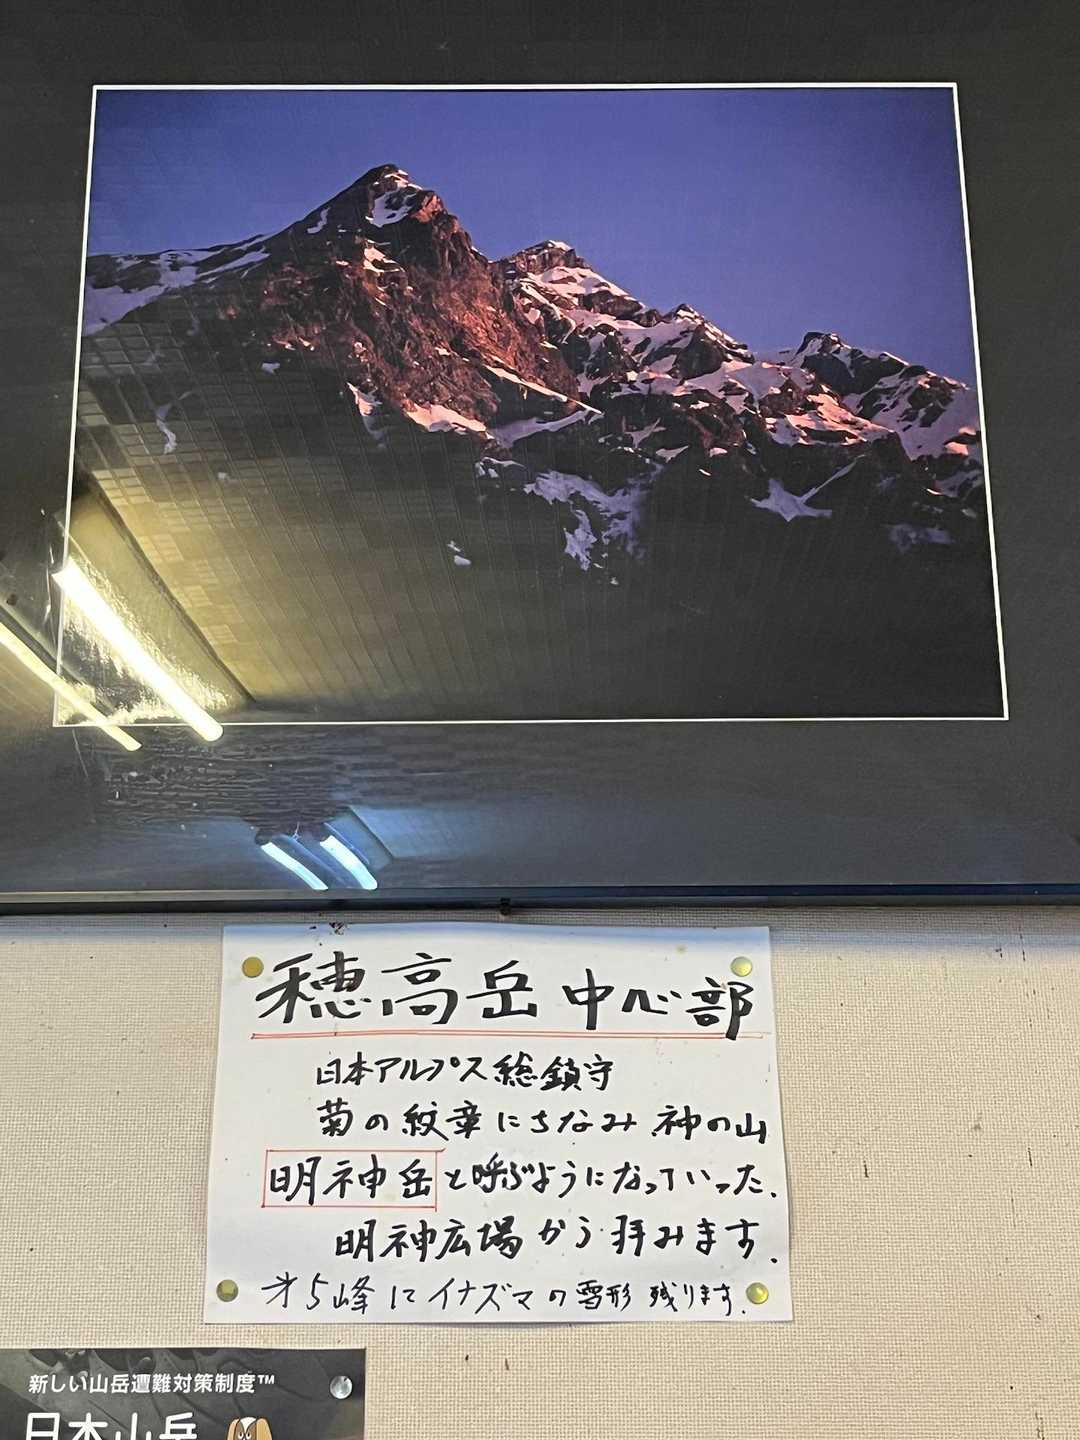 穂高岳 中心部
日本アルプス総鎮守
菊の紋章にちなみ 神の山
明神岳と呼ぶようになっていった.
明神広場から拝みます.
才5峰にイナズマの雪形 残ります.
新しい山岳遭難対策制度™
日本山岳